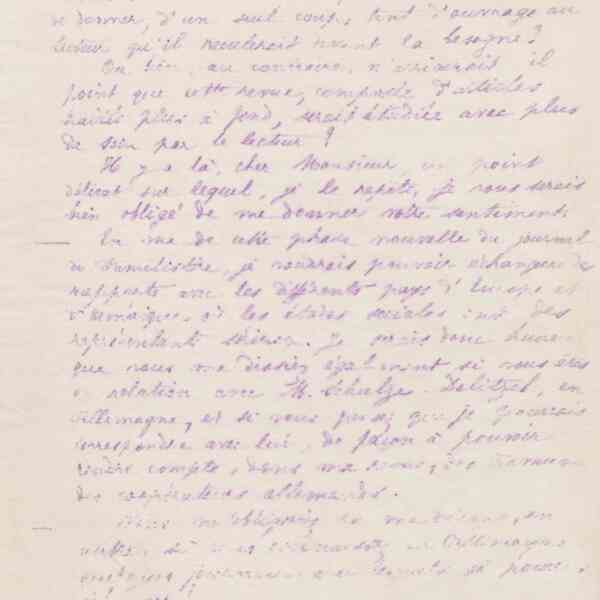 donner, d'un seul coup, tant d'ouvrage au
lecteur qu'il reculerait devant la besogne?
Ou bien, au contraire, n'arriverait il
point que cette revue, composée d'articles
traités plus à fond, serait étudiée avec plus
de soin par le lecteur?
Il y a là, cher Monsieur, un point
délicat sur lequel, je le répète, je vous serais
bien obligé de me donner votre sentiment.
En vue de cette phase nouvelle du journal
du Familistère, je voudrais pouvoir échanger des
rapports avec les différents pays d'Europe et
d'Amérique, où les études sociales ont des
représentants sérieux. Je serais donc
que vous me disiez également si vous êtes
en relation avec M. Schulze-Delitzch, en
Allemagne, et si vous pensez que je pourrais
correspondre avec lui, de façon à pouvoir
rendre compte, dans ma revue, des travaux
des coopérateurs allemands.
Vous m'obligeriez en me disant, en
outre, si en Allemagne